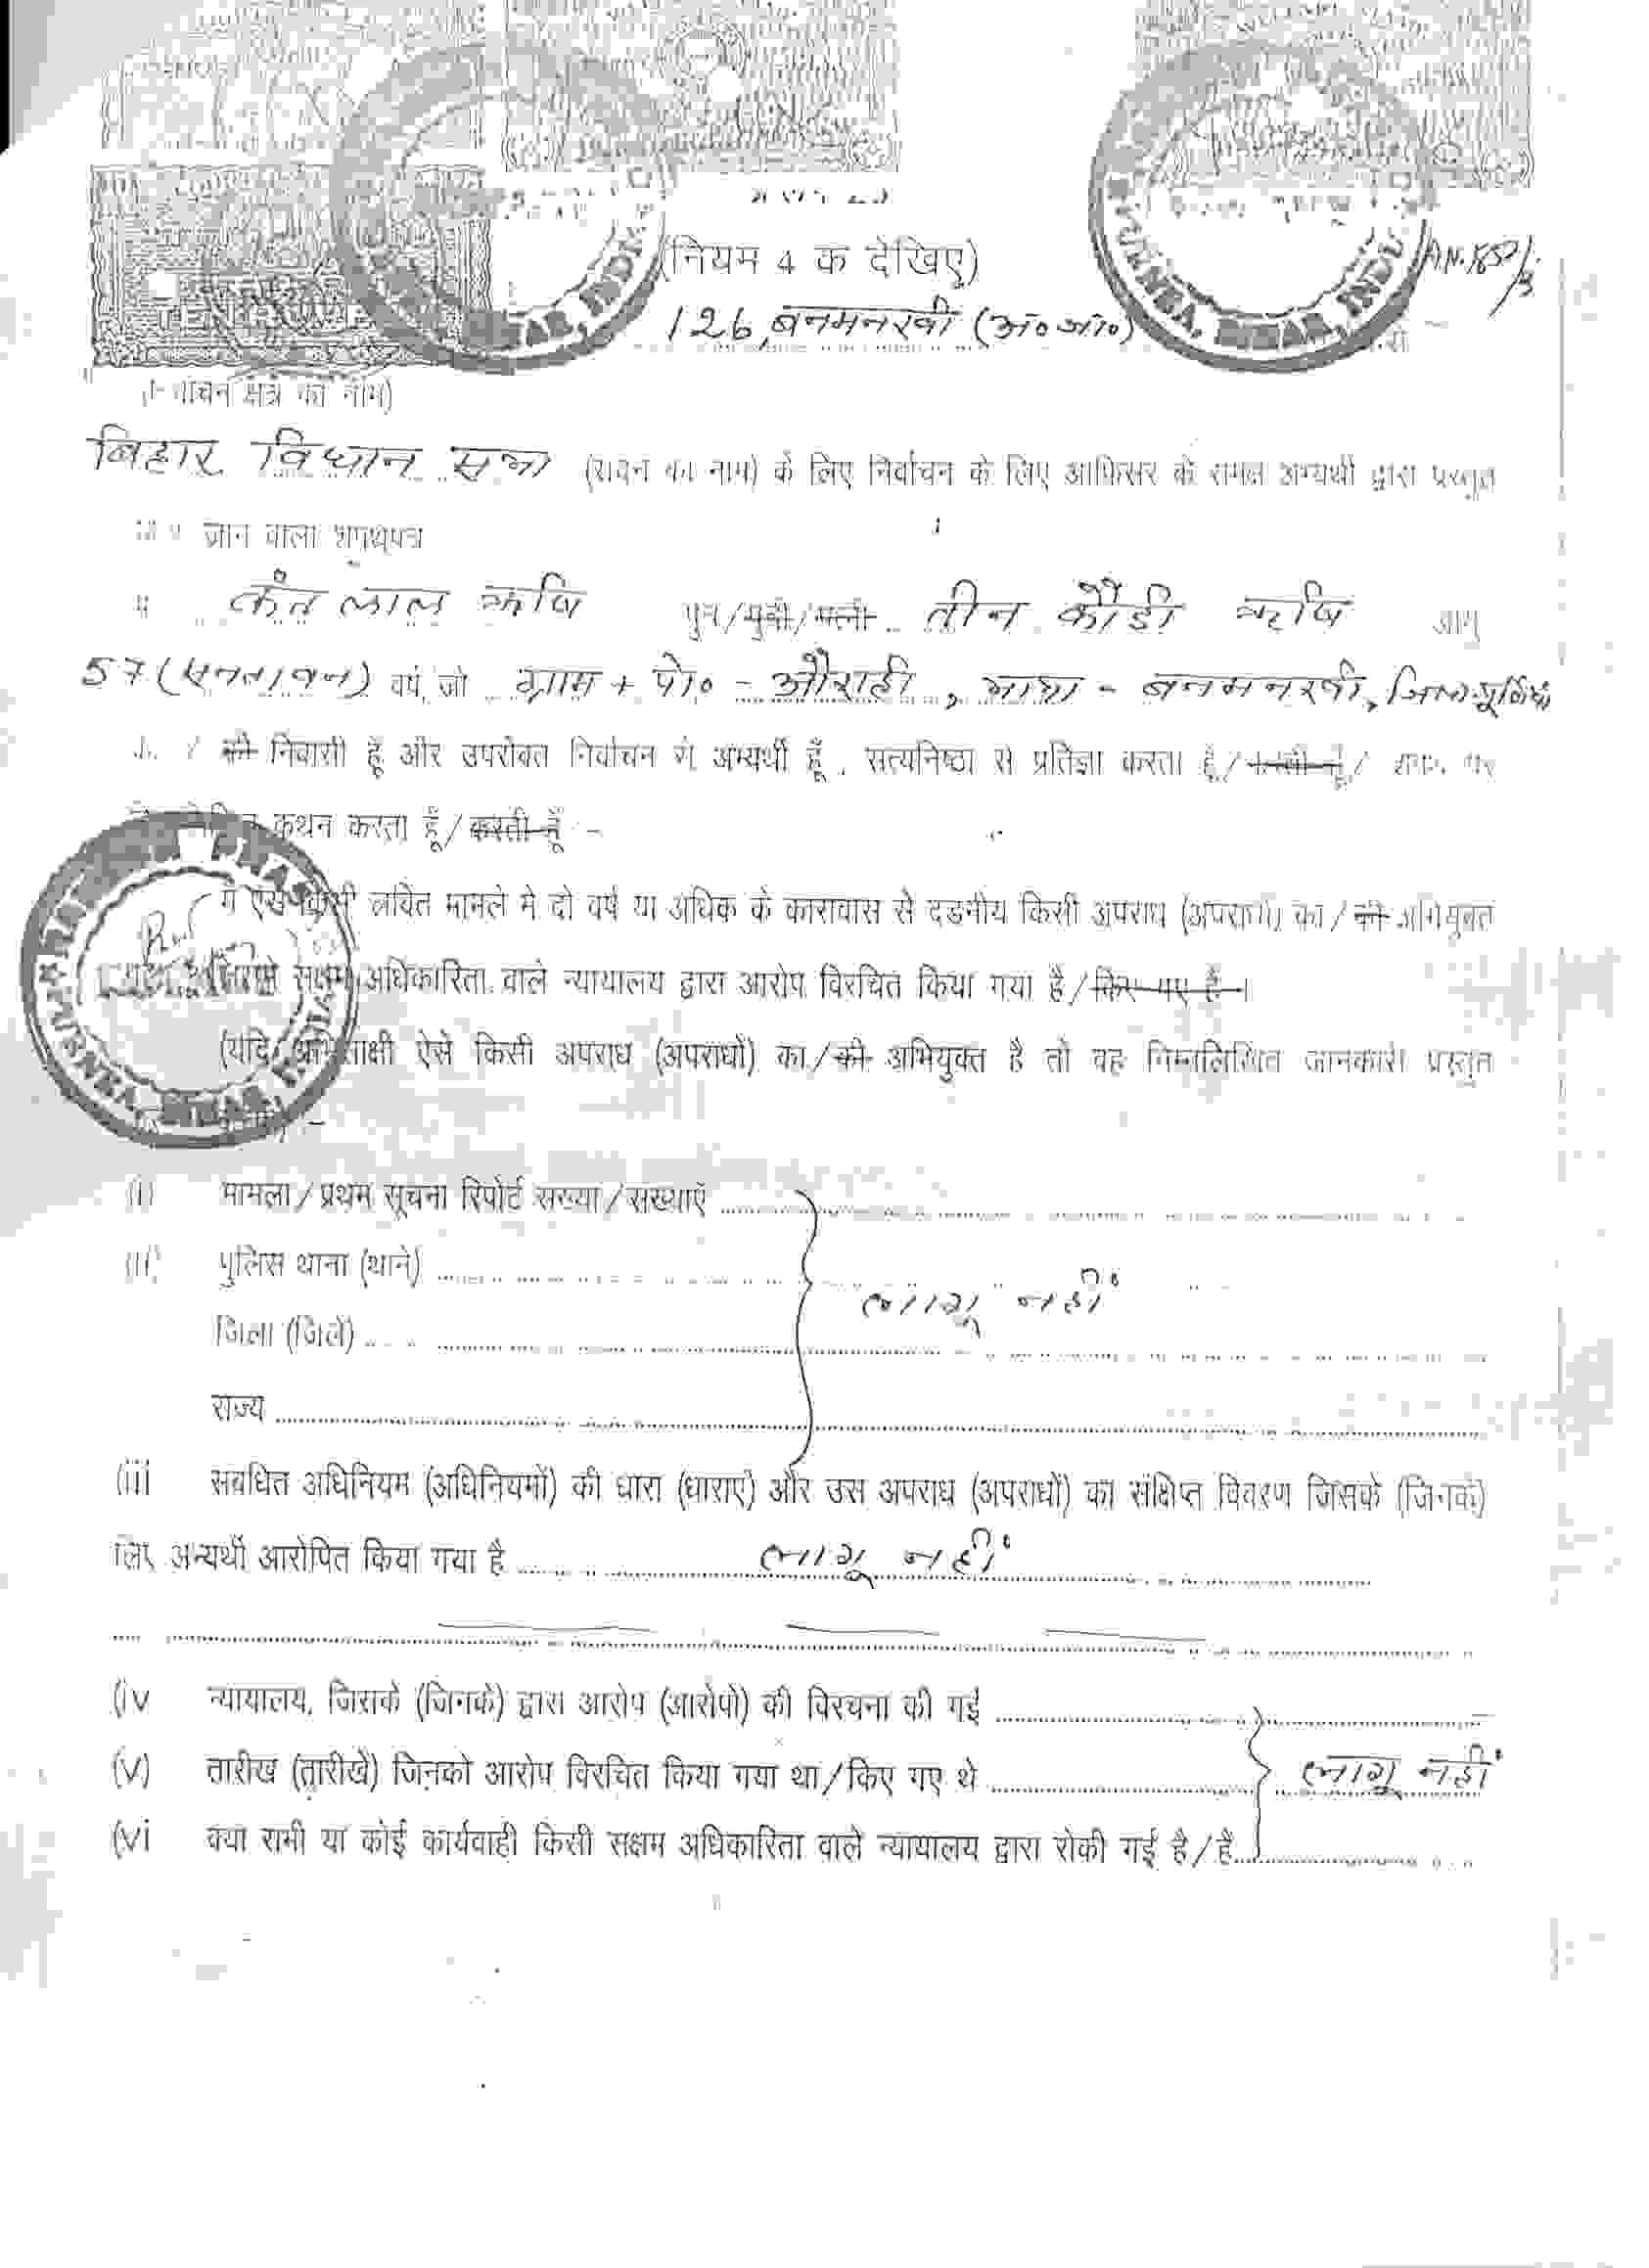 (नियम 4 क देखिए)
AN.1850/13
126, बनमनखी (अ० जा०)
निर्वाचन क्षेत्र का नाम)
बिहार विधान सभा (सदन का नाम) के लिए निर्वाचन के लिए आफिसर के समक्ष अभ्यर्थी द्वारा प्रस्तुत
जाने वाला शपथपत्र
कंत लाल ऋषि पुत्र/पुत्री/पत्नी तीन कौड़ी ऋषि आयु
57 (सनतावन) वर्ष, जो ग्राम + पो० - औराही, थाना - बनमनखी, जिला-पूर्णियां
/ की निवासी हूँ और उपरोक्त निर्वाचन से अभ्यर्थी हूँ, सत्यनिष्ठा से प्रतिज्ञा करता हूँ/करती हूँ/ शपथ पर
कथन करता हूँ/करती हूँ :-
मैं ऐसे किसी लंबित मामले मे दो वर्ष या अधिक के कारावास से दडनीय किसी अपराध (अपराधों) का/की अभियुक्त
सक्षम अधिकारिता वाले न्यायालय द्वारा आरोप विरचित किया गया है/किए गए हैं ।
(यदि अभिसाक्षी ऐसे किसी अपराध (अपराधों) का/की अभियुक्त है तो वह निम्नलिखित जानकारी प्रस्तुत
(i) मामला/प्रथम सूचना रिपोर्ट सख्या/सख्याएँ
(ii) पुलिस थाना (थाने)
लागू नहीं
जिला (जिलें)
राज्य
(iii सबधित अधिनियम (अधिनियमों) की धारा (धाराएं) और उस अपराध (अपराधों) का संक्षिप्त विवरण जिसके (जिनके)
लिए अभ्यर्थी आरोपित किया गया है लागू नहीं
(iv न्यायालय, जिसके (जिनके) द्वारा आरोप (आरोपो) की विरचना की गई
(v) तारीख (तारीखे) जिनको आरोप विरचित किया गया था/किए गए थे लागू नहीं
(vi क्या सभी या कोई कार्यवाही किसी सक्षम अधिकारिता वाले न्यायालय द्वारा रोकी गई है/हैं